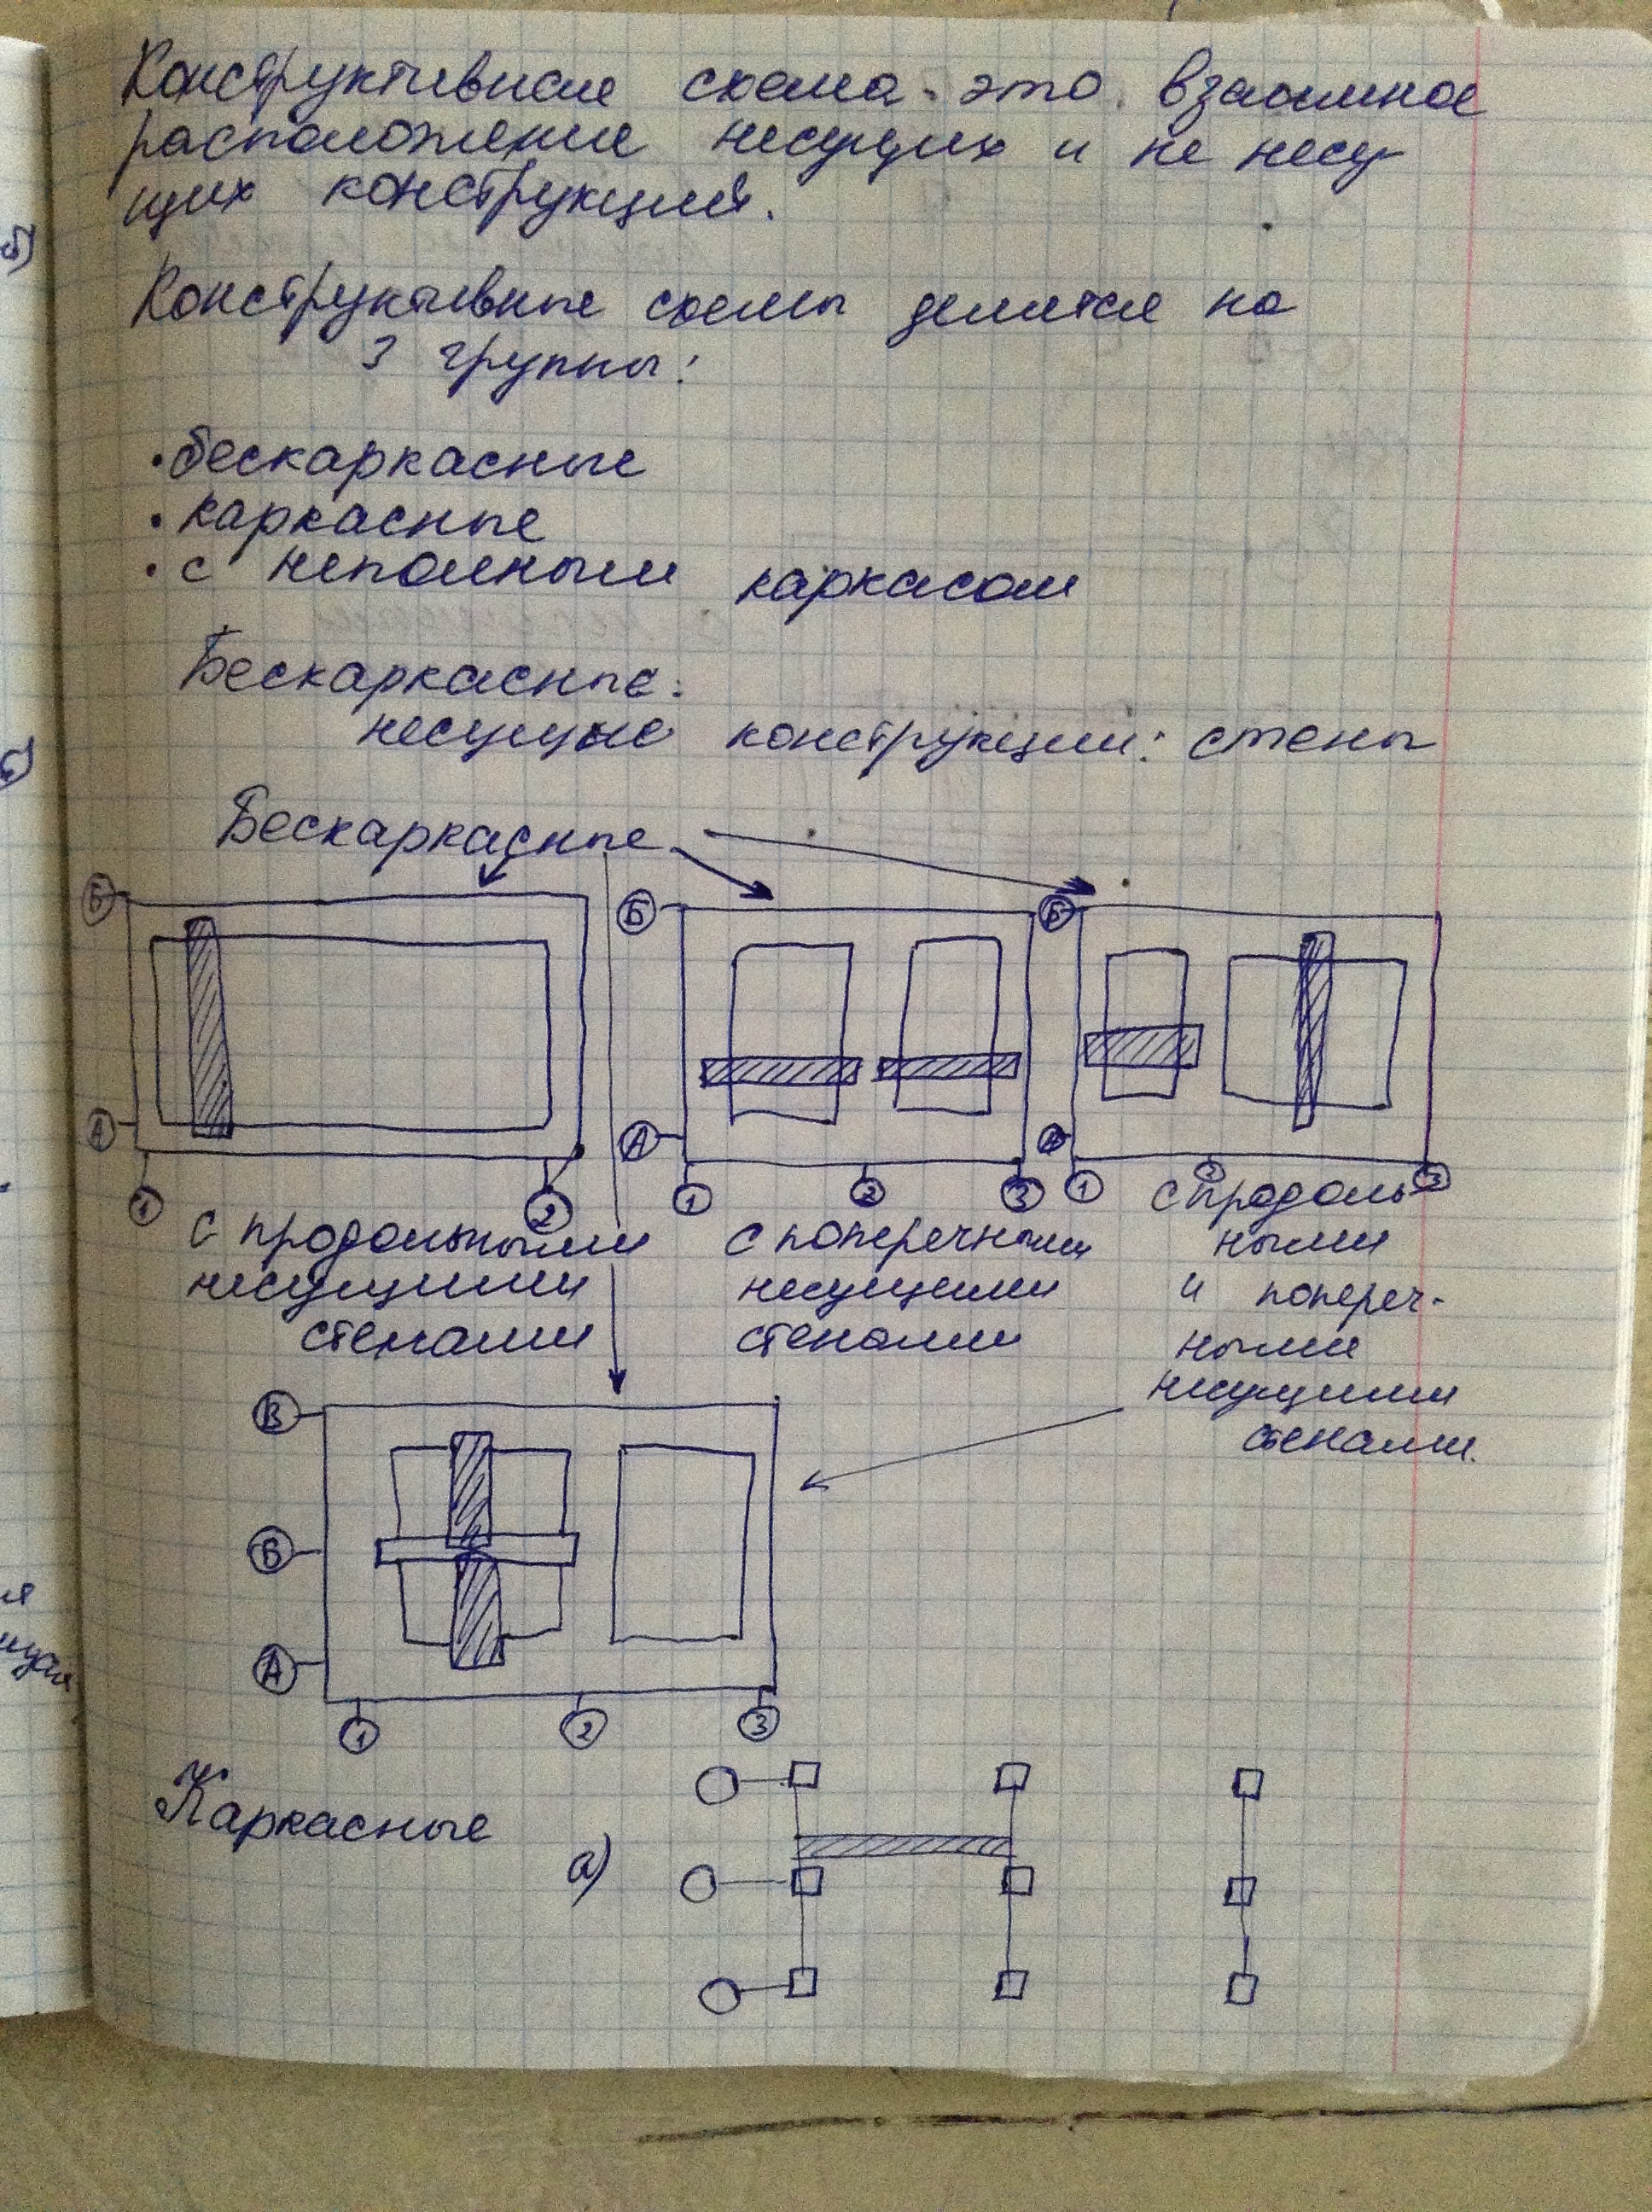 Конструктивная схема - это взаимное
расположение несущих и не несу
щих конструкций.
Конструктивные схемы делятся на
3 группы:
• бескаркасные
• каркасные
• с неполным каркасом
Бескаркасные:
несущие конструкции: стены
Бескаркасные
Б
А
1
2
с продольными
несущими
стенами
Б
А
1
2
3
с поперечными
несущими
стенами
Б
А
1
2
3
с продоль
ными
и попереч-
ными
несущими
стенами.
В
Б
А
1
2
3
Каркасные
а)
б)